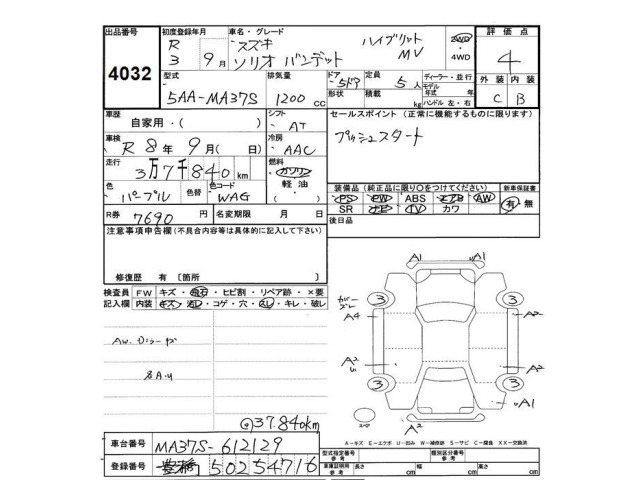 出品番号
4032
初度登録年月
R
3 9月
車名・グレード
スズキ ハイブリット
ソリオ バンデット MV
2WD
・
4WD
評価点
4
型式
5AA-MA37S
排気量
1200 cc
ドア
5ドア
形状
定員
5人
積載 kg
ディーラー・並行
モデル年式 年
ハンドル 左・右
外装 内装
C B
車歴
自家用・( )
シフト
AT
セールスポイント (正常に機能するものに限ります)
プッシュスタート
車検
R 8年 9月( 日)
冷房
AAC
走行
3万7千840 km
燃料
ガソリン
軽油
・
( )
色
パープル
色替
色コード
WAG
装備品 (純正品に限り○をつけてください)
新車保証書
PS PW ABS エアB AW
SR ナビ TV カワ
有・無
R券 7690 円
名変期限 月 日
後日品
注意事項申告欄(不具合内容等は具体的に記入して下さい)
修復歴 有 〔箇所 〕
検査員
記入欄
FW キズ・飛石・ヒビ割・リペア跡・×要
内装 キズ・汚レ・コゲ・穴・スレ・キレ・破レ
@37.840km
A1 A1
3 3
カバー
ズレ
A4 A2
A2 A2
3 3
A1
A2
A−キズ E−エクボ U−凹み W−補修跡 S−サビ C−腐食 XX−交換済
車台番号 MA37S-612129
登録番号 豊橋 502 54716
型式指定番号
参考
類別区分番号
参考
車庫証明用
参考
長さ cm
幅 cm
高さ cm